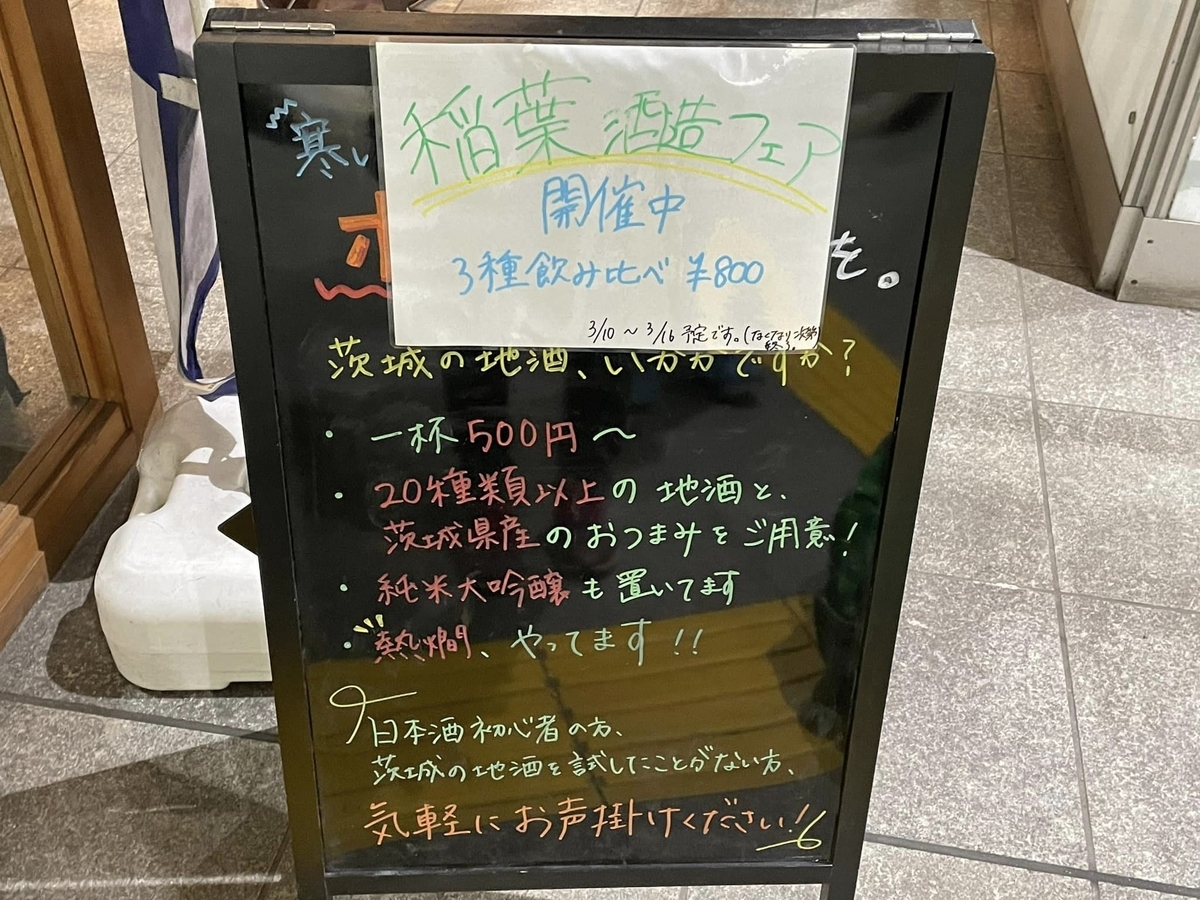 稲葉酒造フェア
開催中
3種飲み比べ ¥800
3/10〜3/16予定です。(なくなり次第
終了。
寒い
を。
茨城の地酒、いかがですか?
・一杯500円〜
・20種類以上の地酒と、
茨城県産のおつまみをご用意!
・純米大吟醸も置いてます
・熱燗、やってます!!
日本酒初心者の方、
茨城の地酒を試したことがない方、
気軽にお声掛けください!